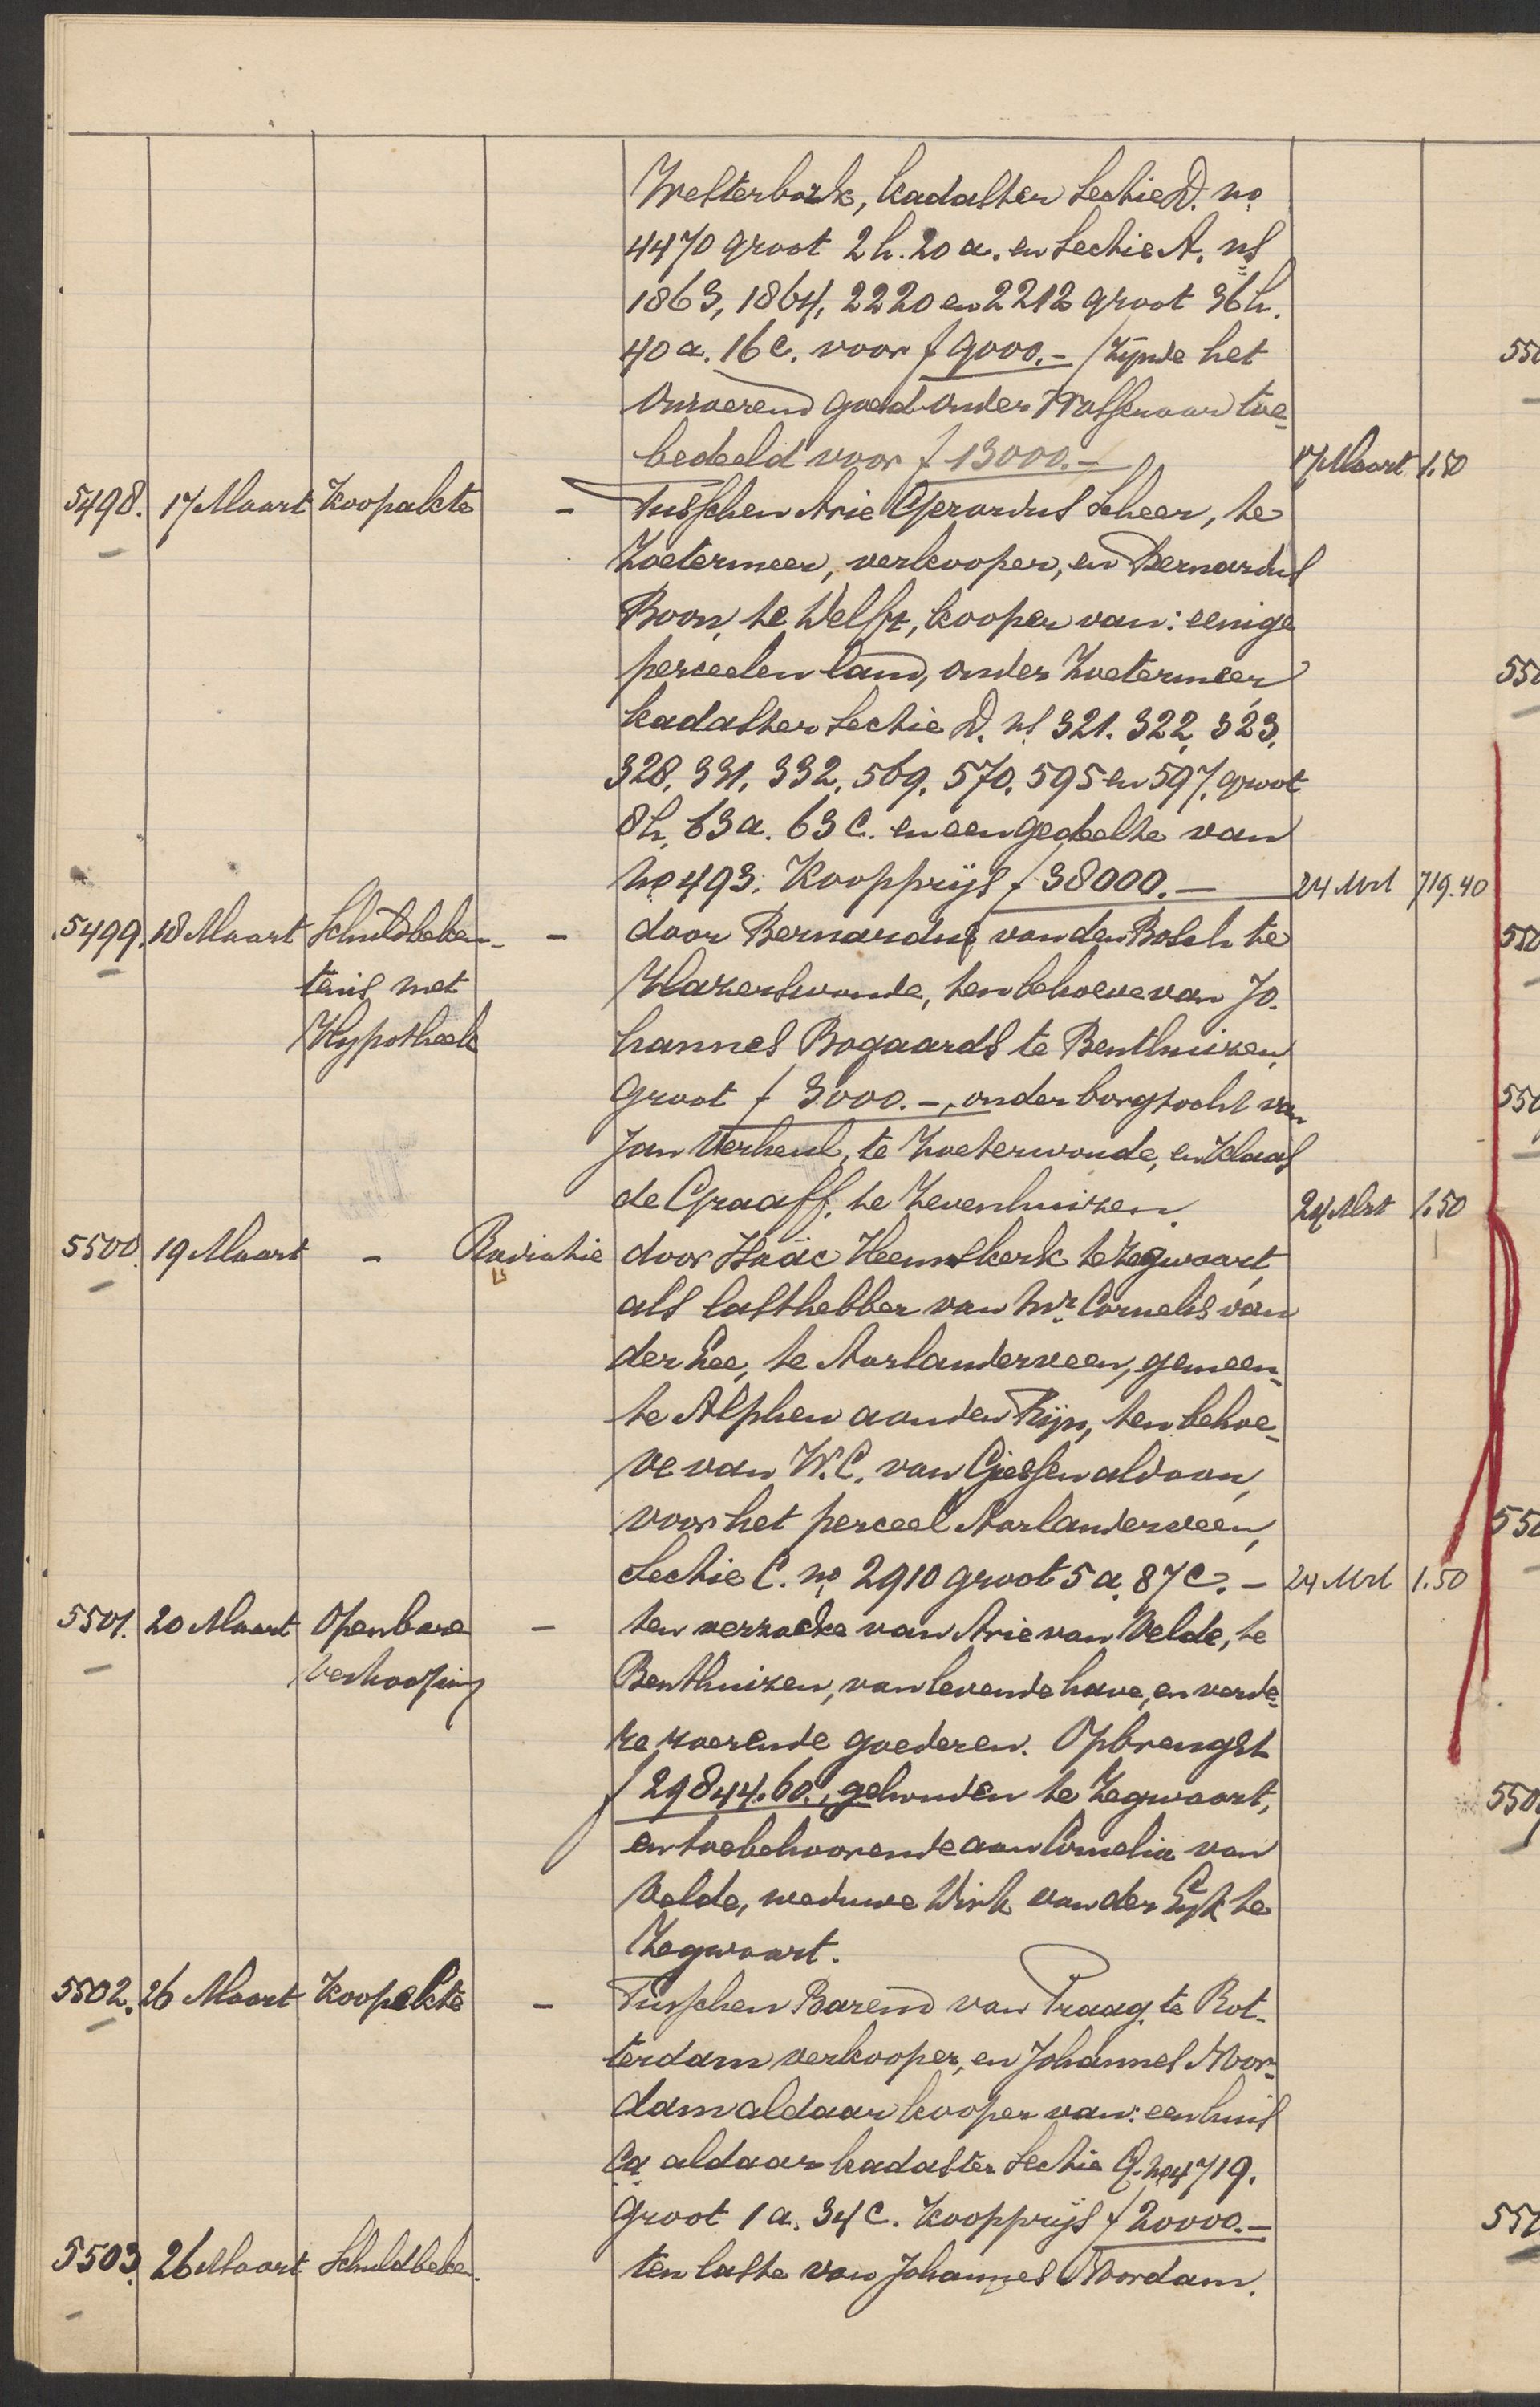 Westerbork, kadaster Sectie D. no.
4470 groot 2 h. 20 a. en Sectie A. ns
1863, 1864, 2220 en 2212 groot 36 h.
40 a. 16 c. voor f 9000.- / zijnde het
onroerend goed onder Wassenaar toe-
bedeeld voor f 13000.- 17 Maart 1.50
5498. 17 Maart Koopakte - Tusschen Arie Gerardus Scheer, te
Zoetermeer, verkooper, en Bernardus
Boon, te Delft, kooper van: eenige
perceelen land, onder Zoetermeer,
kadaster Sectie D. ns 321. 322, 323,
328, 331, 332, 569, 570, 595 en 597, groot
8 h. 63 a. 63 c. en een gedeelte van
no 493. Koopprijs f 38000.- 24 Mrt 719.40
5499. 18 Maart Schuldbeken- - door Bernardus van den Bosch te
tenis met Hazerswoude, ten behoeve van Jo-
Hypotheek hannes Bogaards te Benthuizen,
groot f 3000.-, onder borgtocht van
Jan Verheul, te Zoeterwoude, en Klaas
de Graaff, te Zevenhuizen. 24 Mrt 1.50
5500. 19 Maart - Radiatie door Isaäc Heemskerk te Zegwaart,
als lasthebber van Mr. Cornelis van
der Lee, te Aarlanderveen, gemeen-
te Alphen aan den Rijn, ten behoe-
ve van W. C. van Giessen aldaar,
voor het perceel Aarlanderveen,
Sectie C. no 2910 groot 5 a. 87 c. - 24 Mrt 1.50
5501. 20 Maart Openbare - ten verzoeke van Arie van Velde, te
Verkooping Benthuizen, van levende have, en verde-
re roerende goederen. Opbrengst
f 29844.60., gehouden te Zegwaart,
en toebehoorende aan Cornelia van
Velde, weduwe Dirk van der Eijk te
Zegwaart.
5502. 26 Maart Koopakte - Tusschen Barend van Praag, te Rot-
terdam verkooper, en Johannes Noor-
dam aldaar kooper van: een huis
ca aldaar kadaster Sectie Q. no 4719.
groot 1 a. 34 c. Koopprijs f 20000.-
5503. 26 Maart Schuldbeke- ten laste van Johannes Noordam.